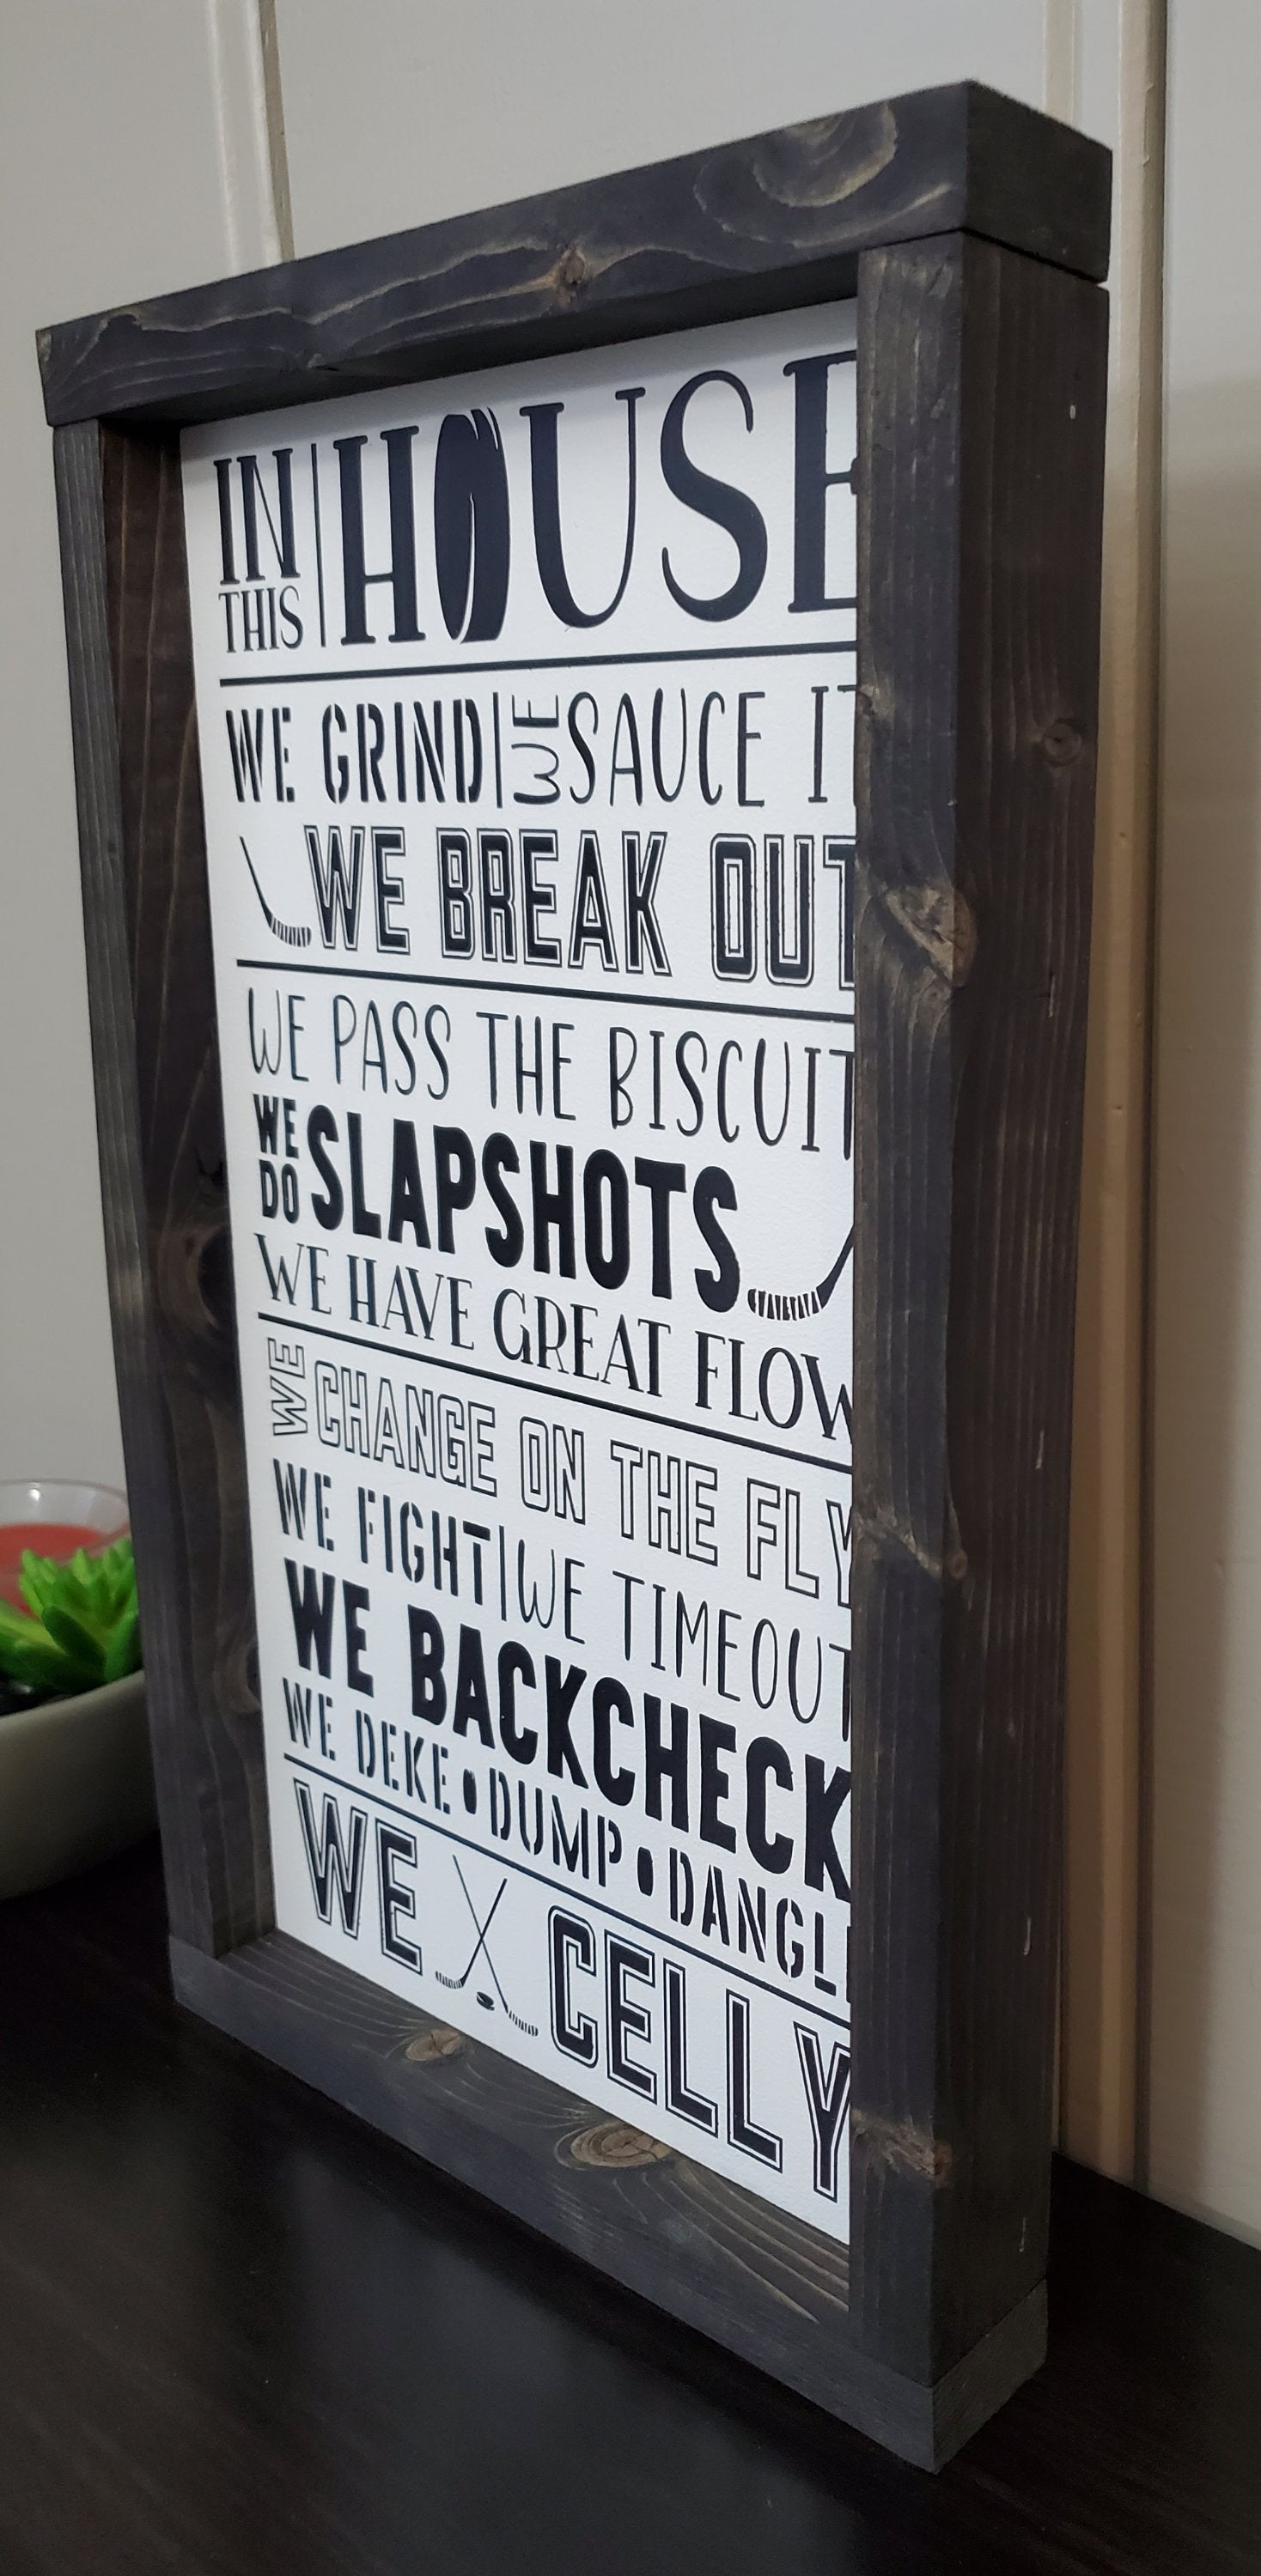 IN THIS | HOUSE
WE GRIND | WE SAUCE IT
WE BREAK OUT
WE PASS THE BISCUIT
WE DO SLAPSHOTS
WE HAVE GREAT FLOW
WE CHANGE ON THE FLY
WE FIGHT | WE TIMEOUT
WE BACKCHECK
WE DEKE • DUMP • DANGLE
WE CELLY